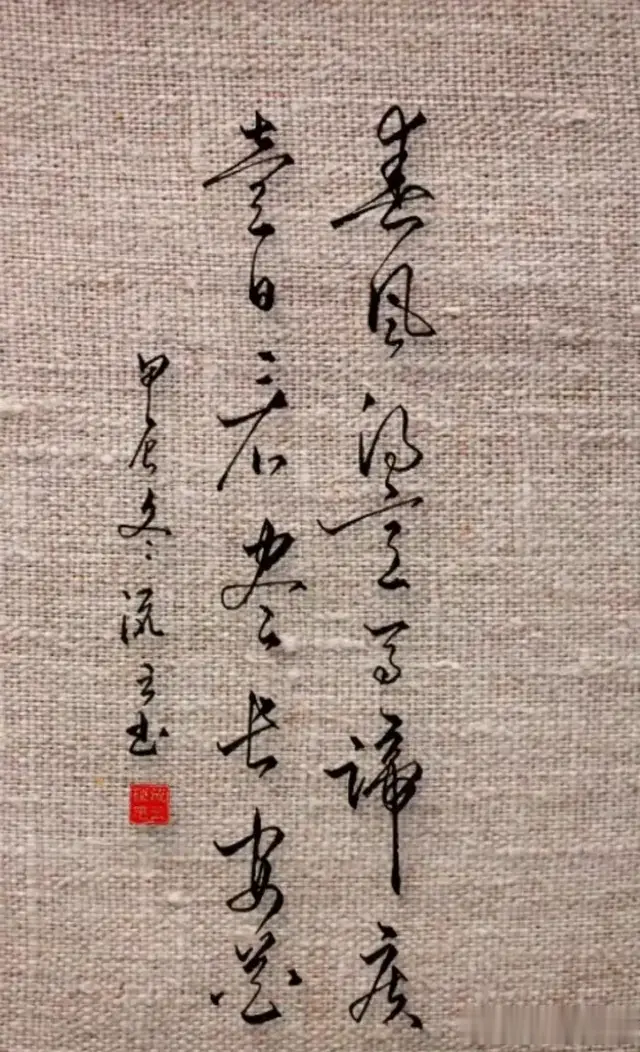 春风得意马蹄疾
壹日看尽长安花
甲辰冬书